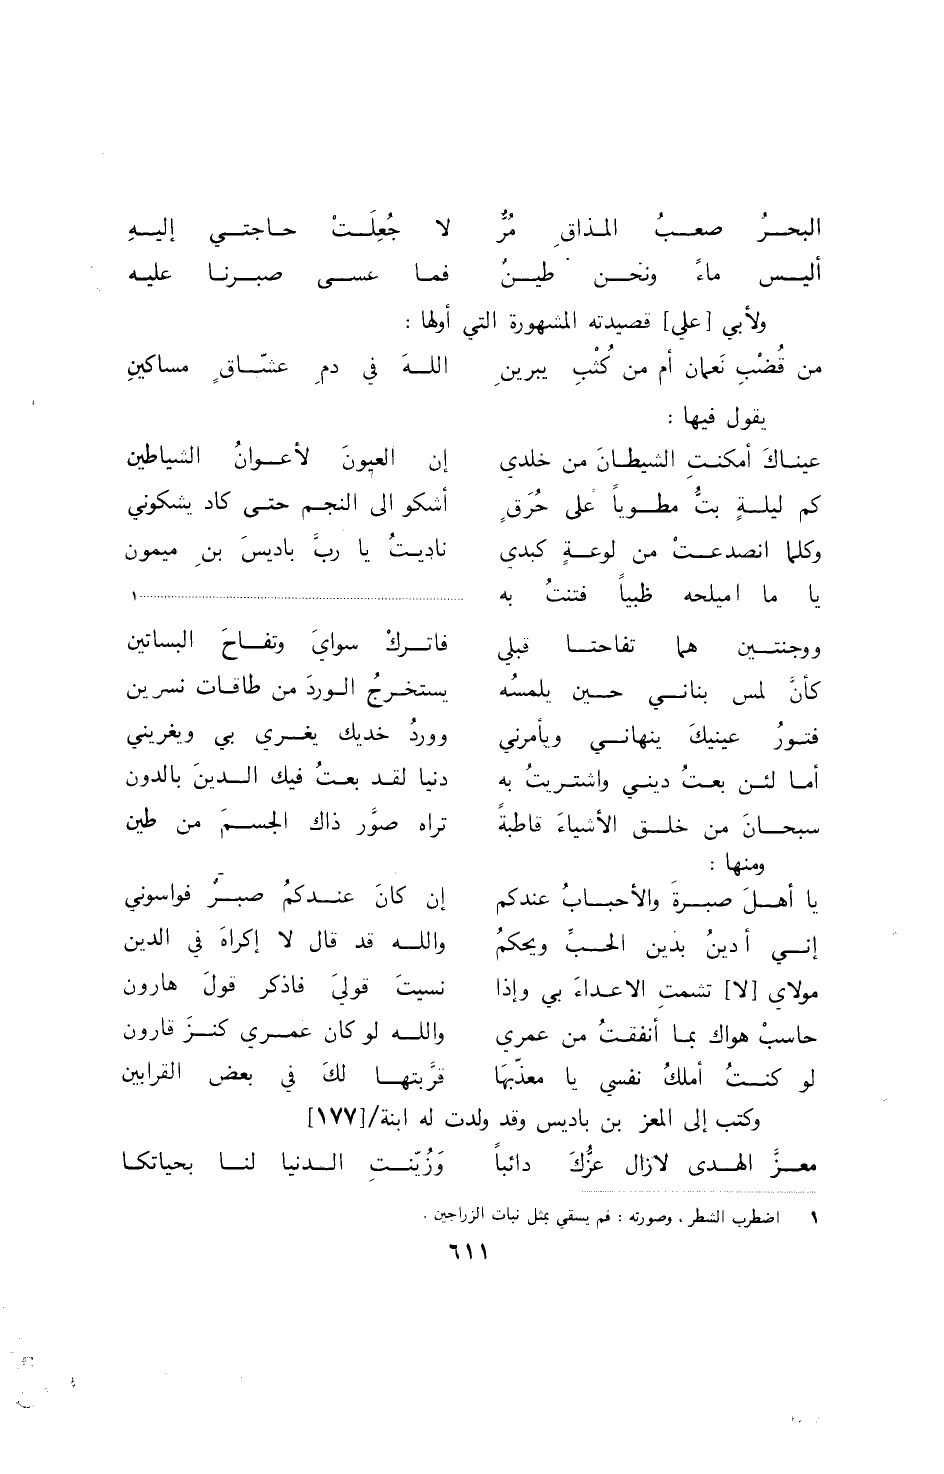 البحرُ صعبُ المذاقِ مُرٌّ لا جُعِلَتْ حاجتي إليهِ
أليس ماءً ونحن طينٌ فما عسى صبرنا عليه
ولأبي [علي] قصيدته المشهورة التي أولها :
من قُضْبِ نَعمان أم من كُثْبِ يبرينِ اللهَ في دمِ عشّاقٍ مساكينِ
يقول فيها :
عيناكَ أمكنتِ الشيطانَ من خلدي إن العيونَ لأعوانُ الشياطين
كم ليلةٍ بتُّ مطوياً على حُرَقٍ أشكو الى النجم حتى كاد يشكوني
وكلما انصدعتْ من لوعةٍ كبدى ناديتُ يا ربَّ باديسَ بنِ ميمون
يا ما اميلحه ظبياً فتنتُ به ......................١
ووجنتين هما تفاحتا قبلي فاتركْ سوايَ وتفاحَ البساتين
كأنَّ لمس بناني حين يلمسُه يستخرجُ الوردَ من طاقات نسرين
فتورُ عينيكَ ينهاني ويأمرني ووردُ خديك يغري بي ويغريني
أما لئن بعتُ ديني واشتريتُ به دنيا لقد بعتُ فيك الدينَ بالدون
سبحانَ من خلق الأشياءَ قاطبةً تراه صوَّر ذاك الجسمَ من طين
ومنها :
يا أهلَ صبرةَ والأحبابُ عندكم إن كانَ عندكمُ صبرٌ فواسوني
إني أدينُ بدين الحبِّ ويحكمُ والله قد قال لا إكراهَ في الدين
مولاي [لا] تشمت الاعداءَ بي وإذا نسيتَ قولي فاذكر قولَ هارون
حاسبْ هواك بما أنفقتُ من عمري والله لو كان عمري كنزَ قارون
لو كنتُ أملكُ نفسي يا معذّبَها قرَّبتها لكَ في بعض القرابين
وكتب إلى المعز بن باديس وقد ولدت له ابنة/[١٧٧]
معزَّ الهدى لازال عزُّكَ دائباً وَزُيّنتِ الدنيا لنا بحياتكا
١ اضطرب الشطر ، وصورته : فم يسقي بمثل نبات الزراجين .
٦١١